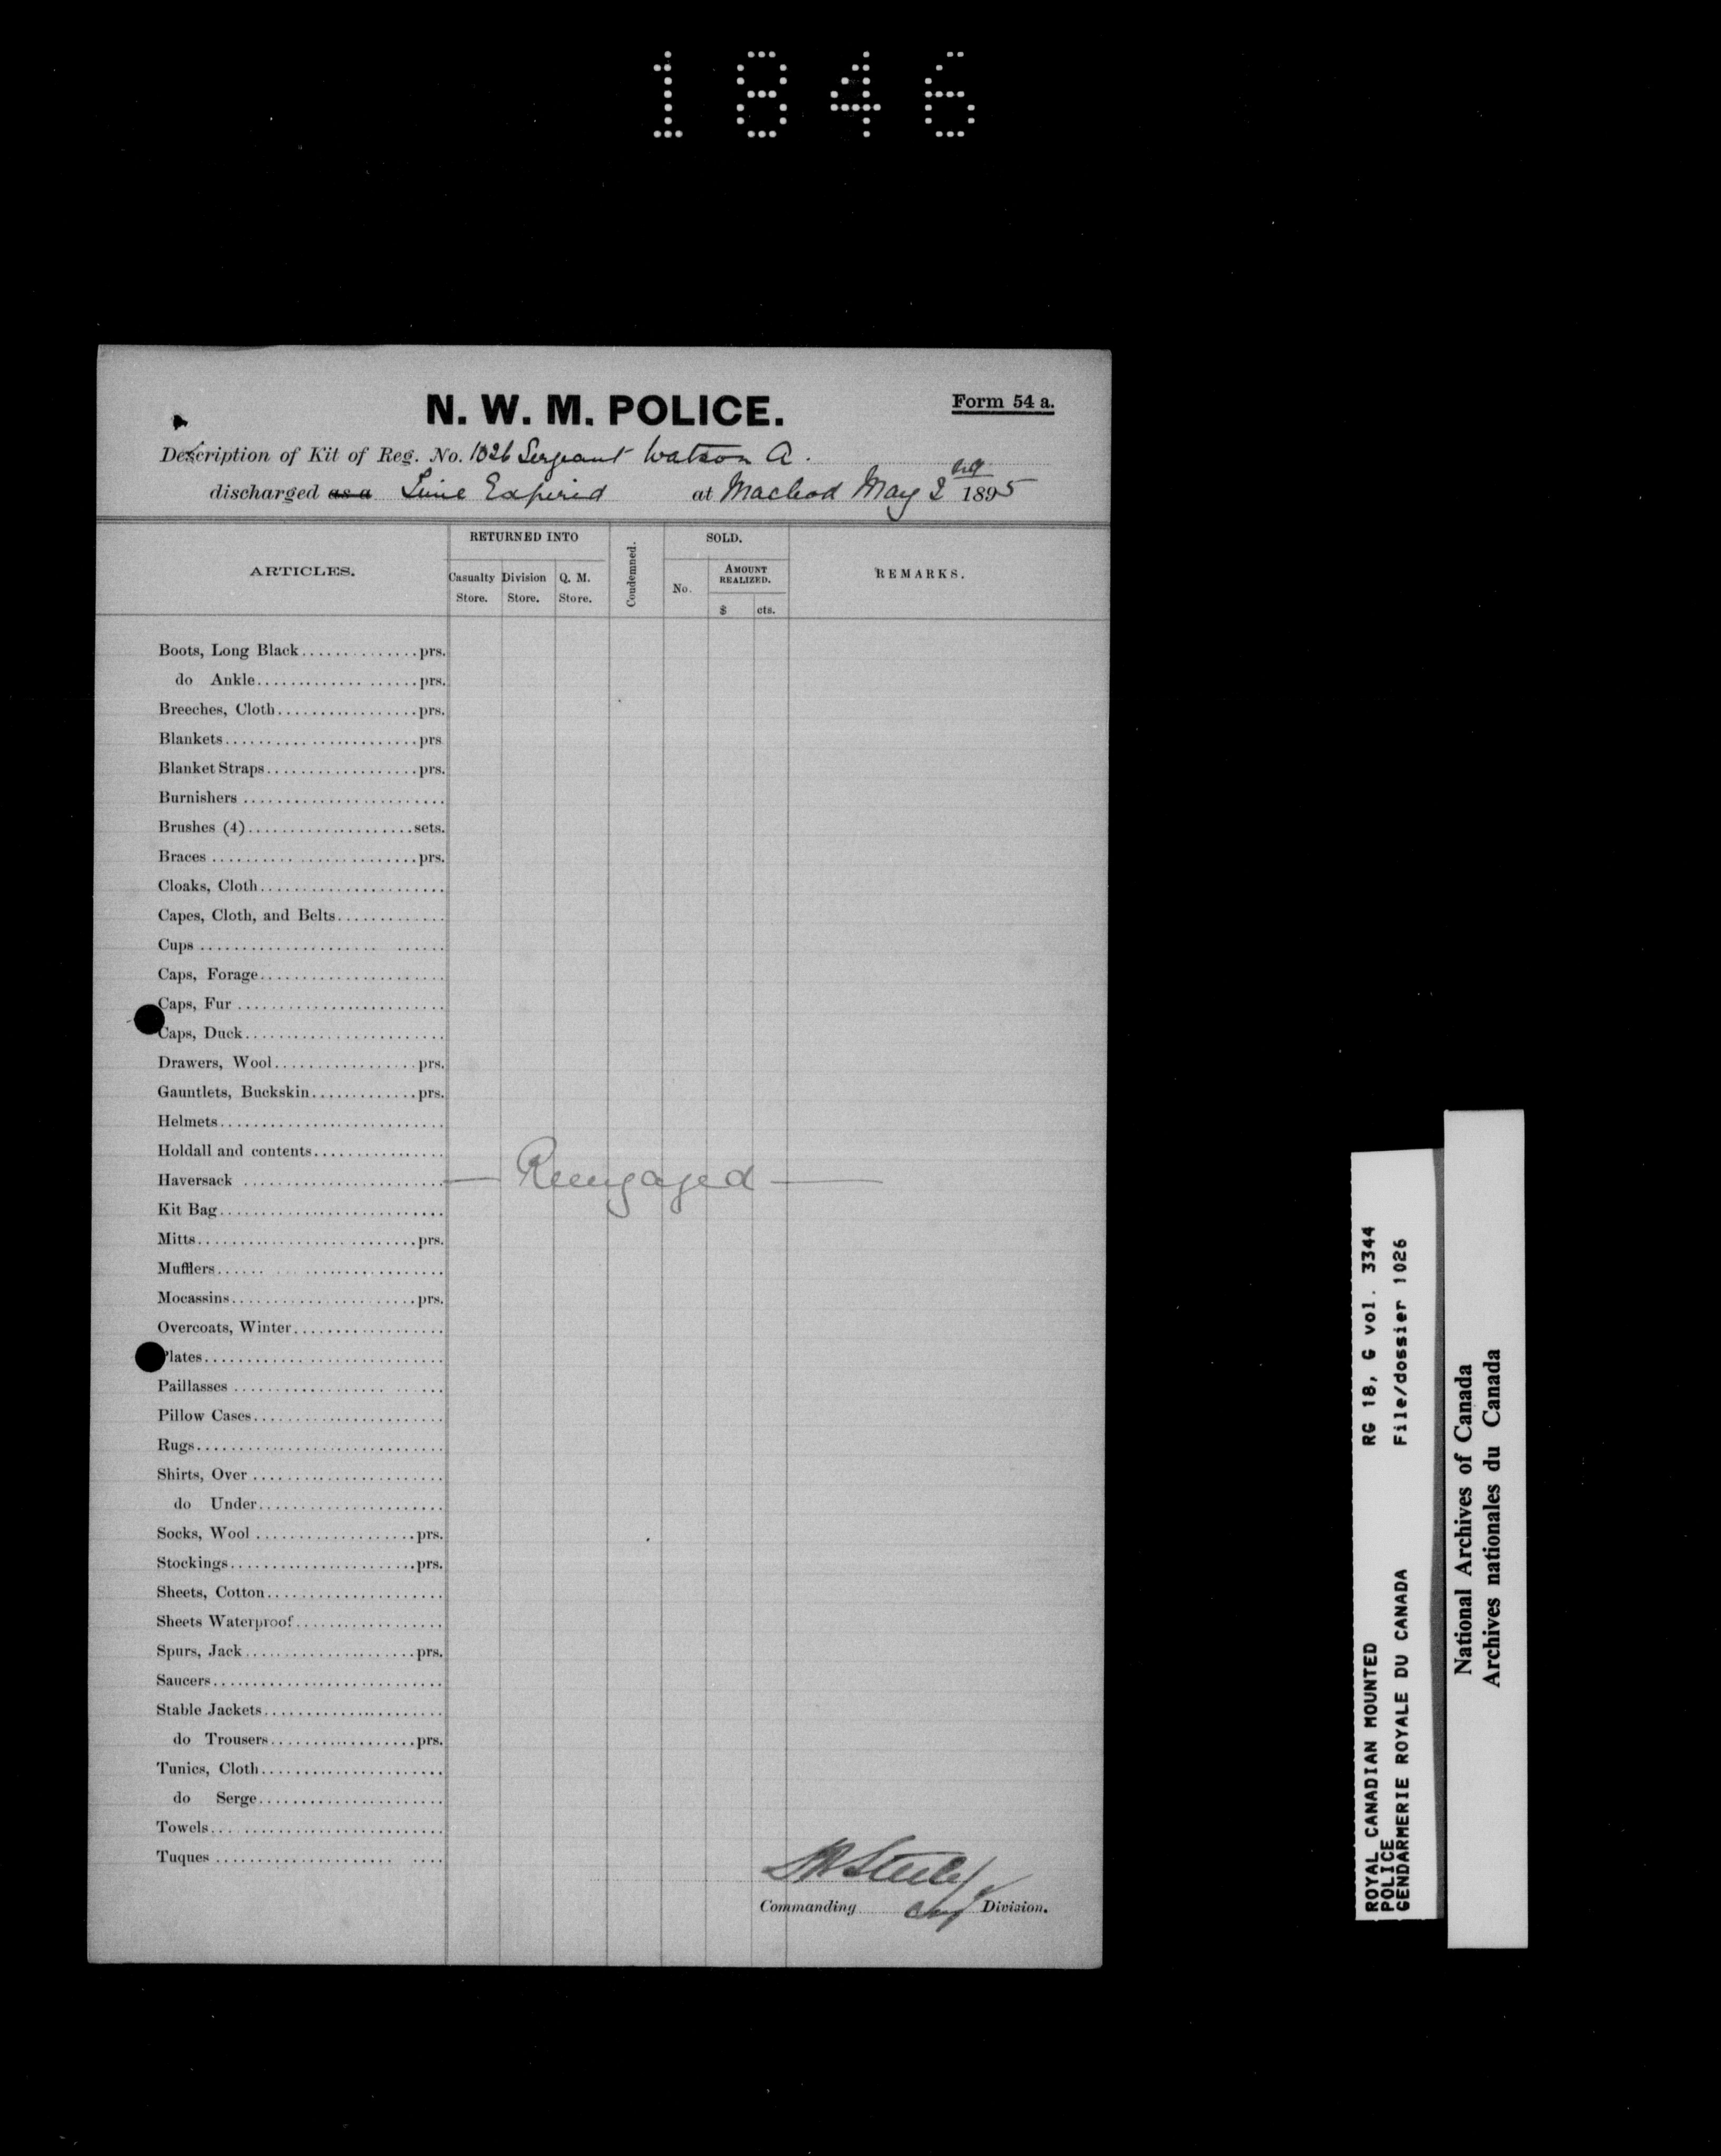 1846
N. W. M. POLICE.
Form 54 a.
Description of Kit of Reg. No. 1026 Sergeant Watson A.
discharged as a Time Expired at Macleod May 2nd 1895
ARTICLES.
RETURNED INTO
Casualty Store.
Division Store.
Q. M. Store.
Condemned.
SOLD.
No.
AMOUNT REALIZED.
$ cts.
REMARKS.
Boots, Long Black prs.
do Ankle prs.
Breeches, Cloth prs.
Blankets prs
Blanket Straps prs.
Burnishers
Brushes (4) sets.
Braces prs.
Cloaks, Cloth
Capes, Cloth, and Belts
Cups
Caps, Forage
Caps, Fur
Caps, Duck
Drawers, Wool prs.
Gauntlets, Buckskin prs.
Helmets
Holdall and contents
Haversack
— Reengaged —
Kit Bag
Mitts prs.
Mufflers
Mocassins prs.
Overcoats, Winter
Plates
Paillasses
Pillow Cases
Rugs
Shirts, Over
do Under
Socks, Wool prs.
Stockings prs.
Sheets, Cotton
Sheets Waterproof
Spurs, Jack prs.
Saucers
Stable Jackets
do Trousers prs.
Tunics, Cloth
do Serge
Towels
Tuques
SB Steele
Commanding Division.
ROYAL CANADIAN MOUNTED RG 18, G vol. 3344
POLICE
GENDARMERIE ROYALE DU CANADA File/dossier 1026
National Archives of Canada
Archives nationales du Canada